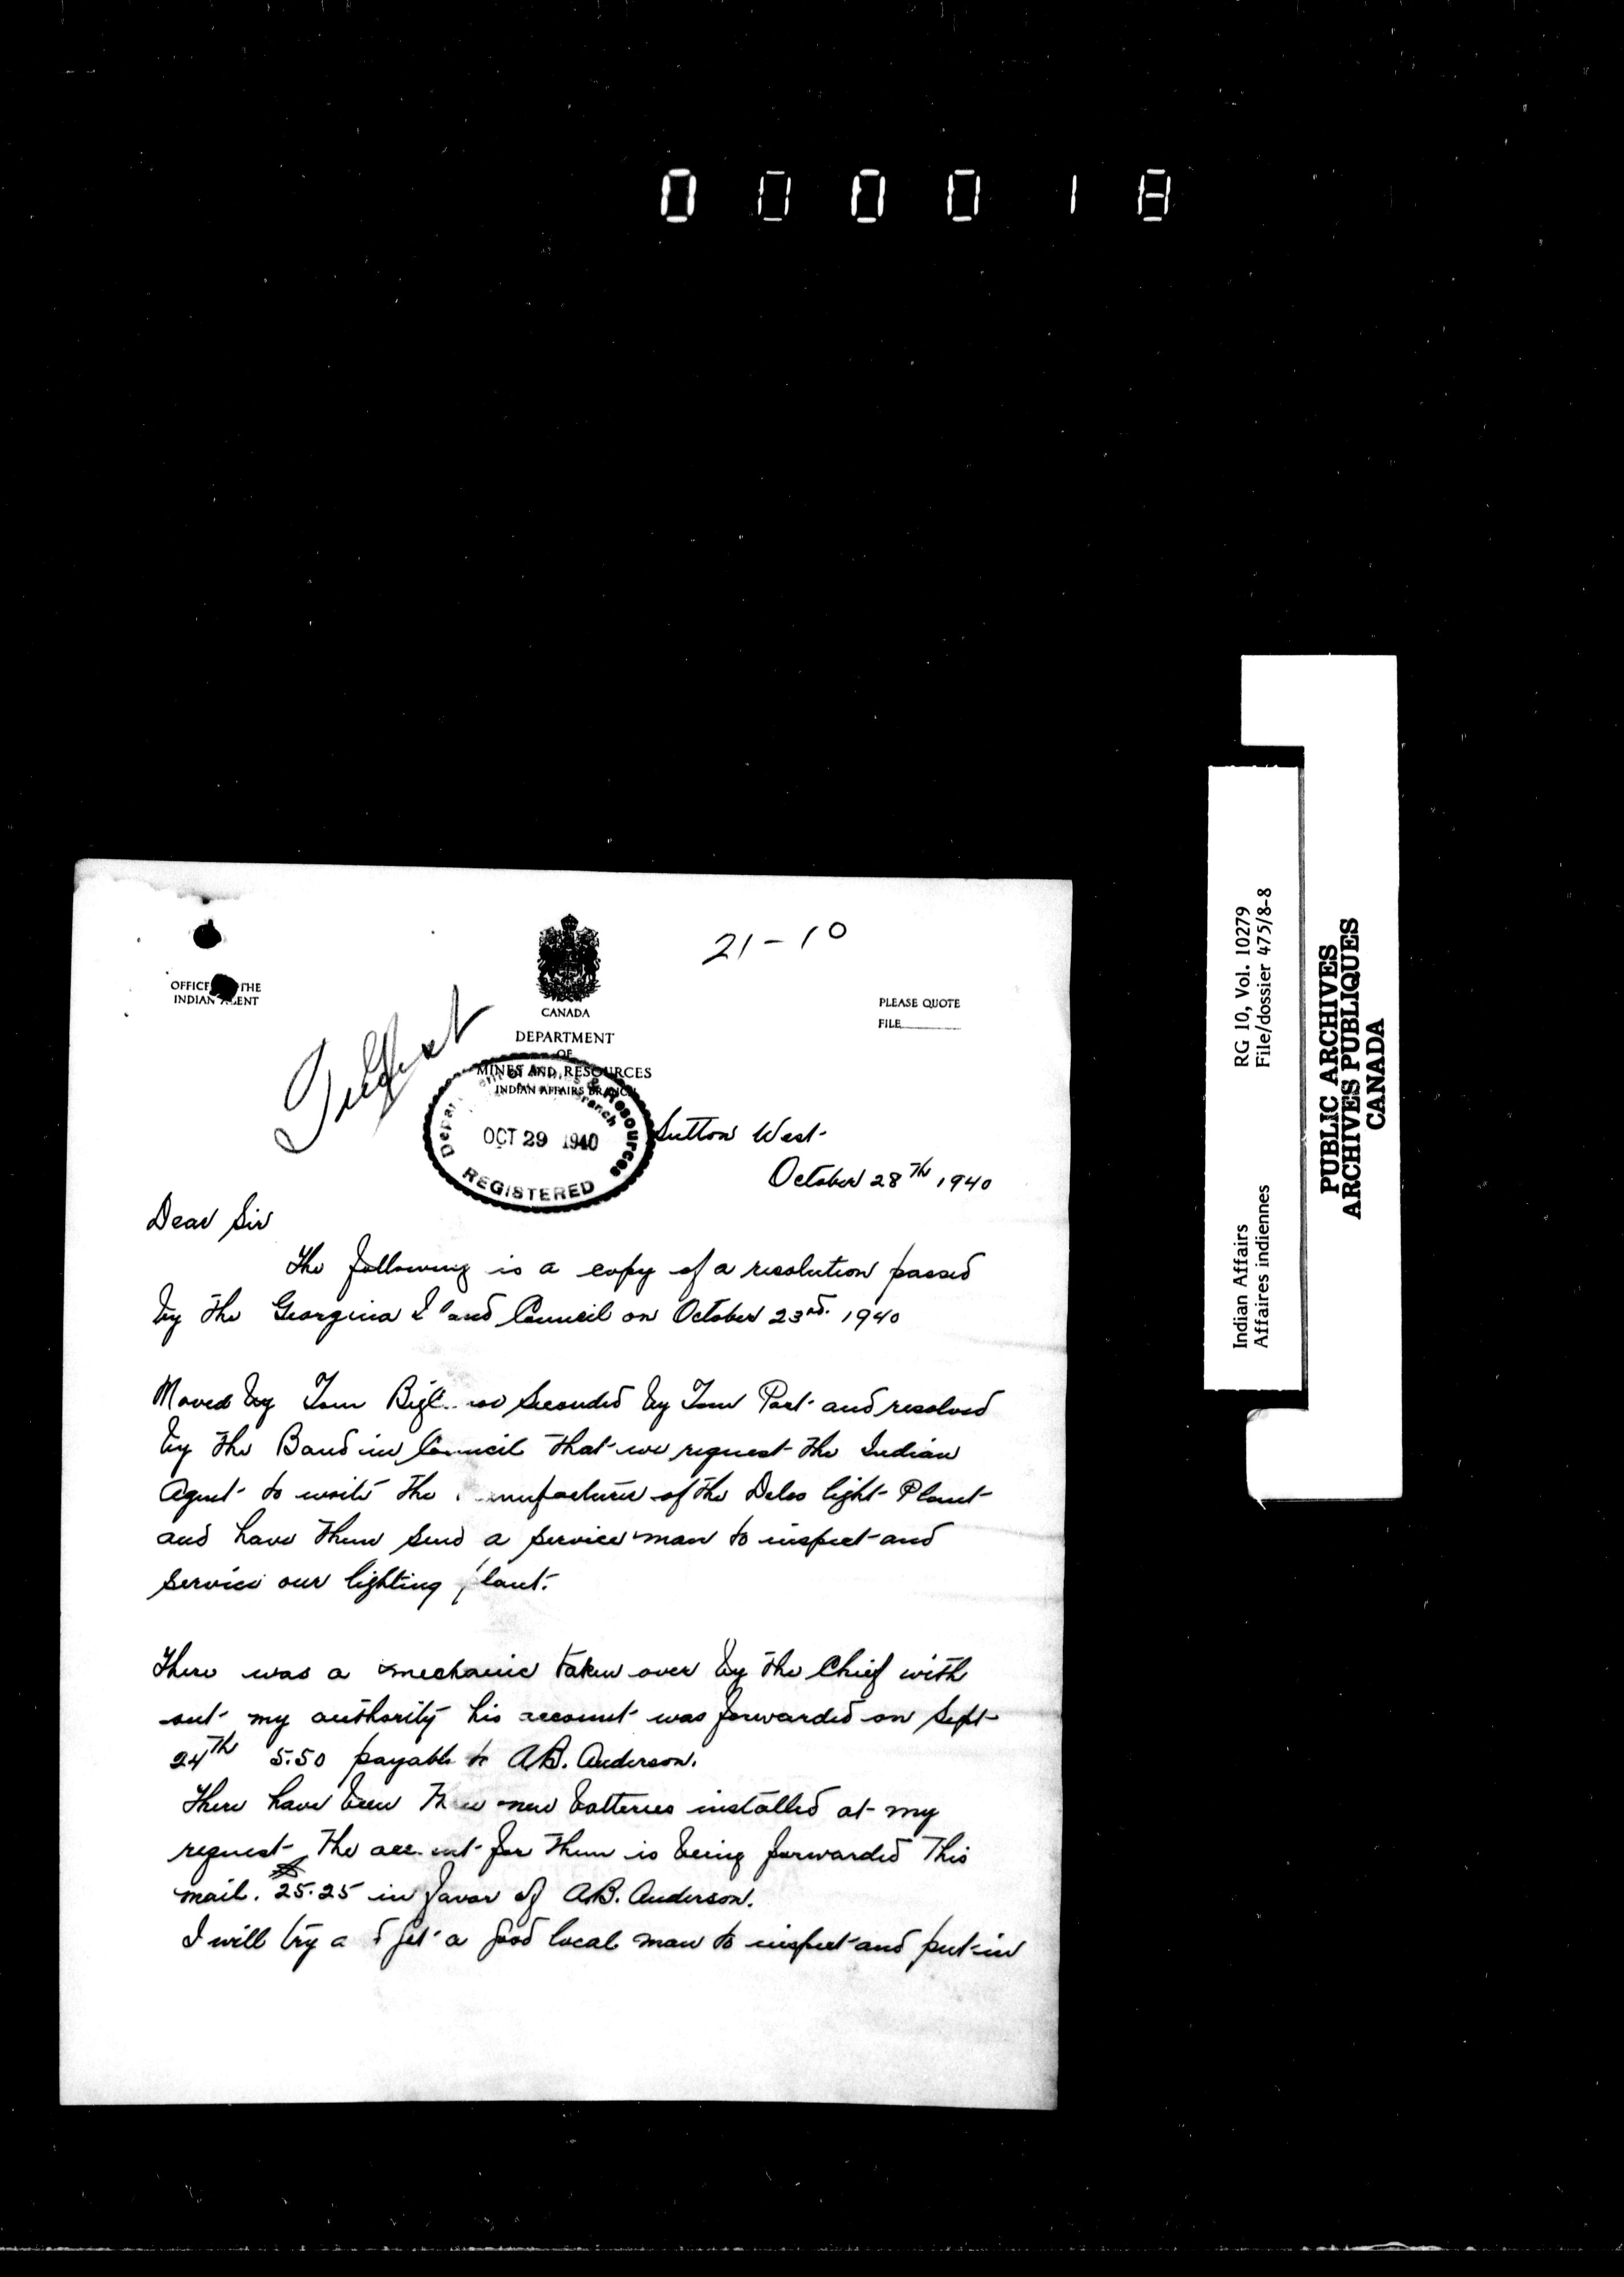 000018
21-10
OFFICE THE
INDIAN AGENT
CANADA
PLEASE QUOTE
FILE
DEPARTMENT
OF
MINES AND RESOURCES
INDIAN AFFAIRS BRANCH
Resources
OCT 29 1940
REGISTERED
Sutton West
October 28th 1940
Dear Sir
The following is a copy of a resolution passed
by the Georgina Island Council on October 23rd. 1940
Moved by Tom seconded by Tom Port and resolved
by the Band in Council that we request the Indian
Agent to write the manufacturer of the Delco light Plant
and have them send a service man to inspect and
service our lighting plant.
There was a mechanic taken over by the Chief with
out my authority his account was forwarded on Sept
24th 5.50 payable to A.B. Anderson.
There have been Three new batteries installed at my
request The account for them is being forwarded This
mail. 25.25 in favor of A.B. Anderson.
I will try and get a good local man to inspect and put in
Indian Affairs RG 10, Vol. 10279
Affaires indiennes File/dossier 475/8-8
PUBLIC ARCHIVES
ARCHIVES PUBLIQUES
CANADA